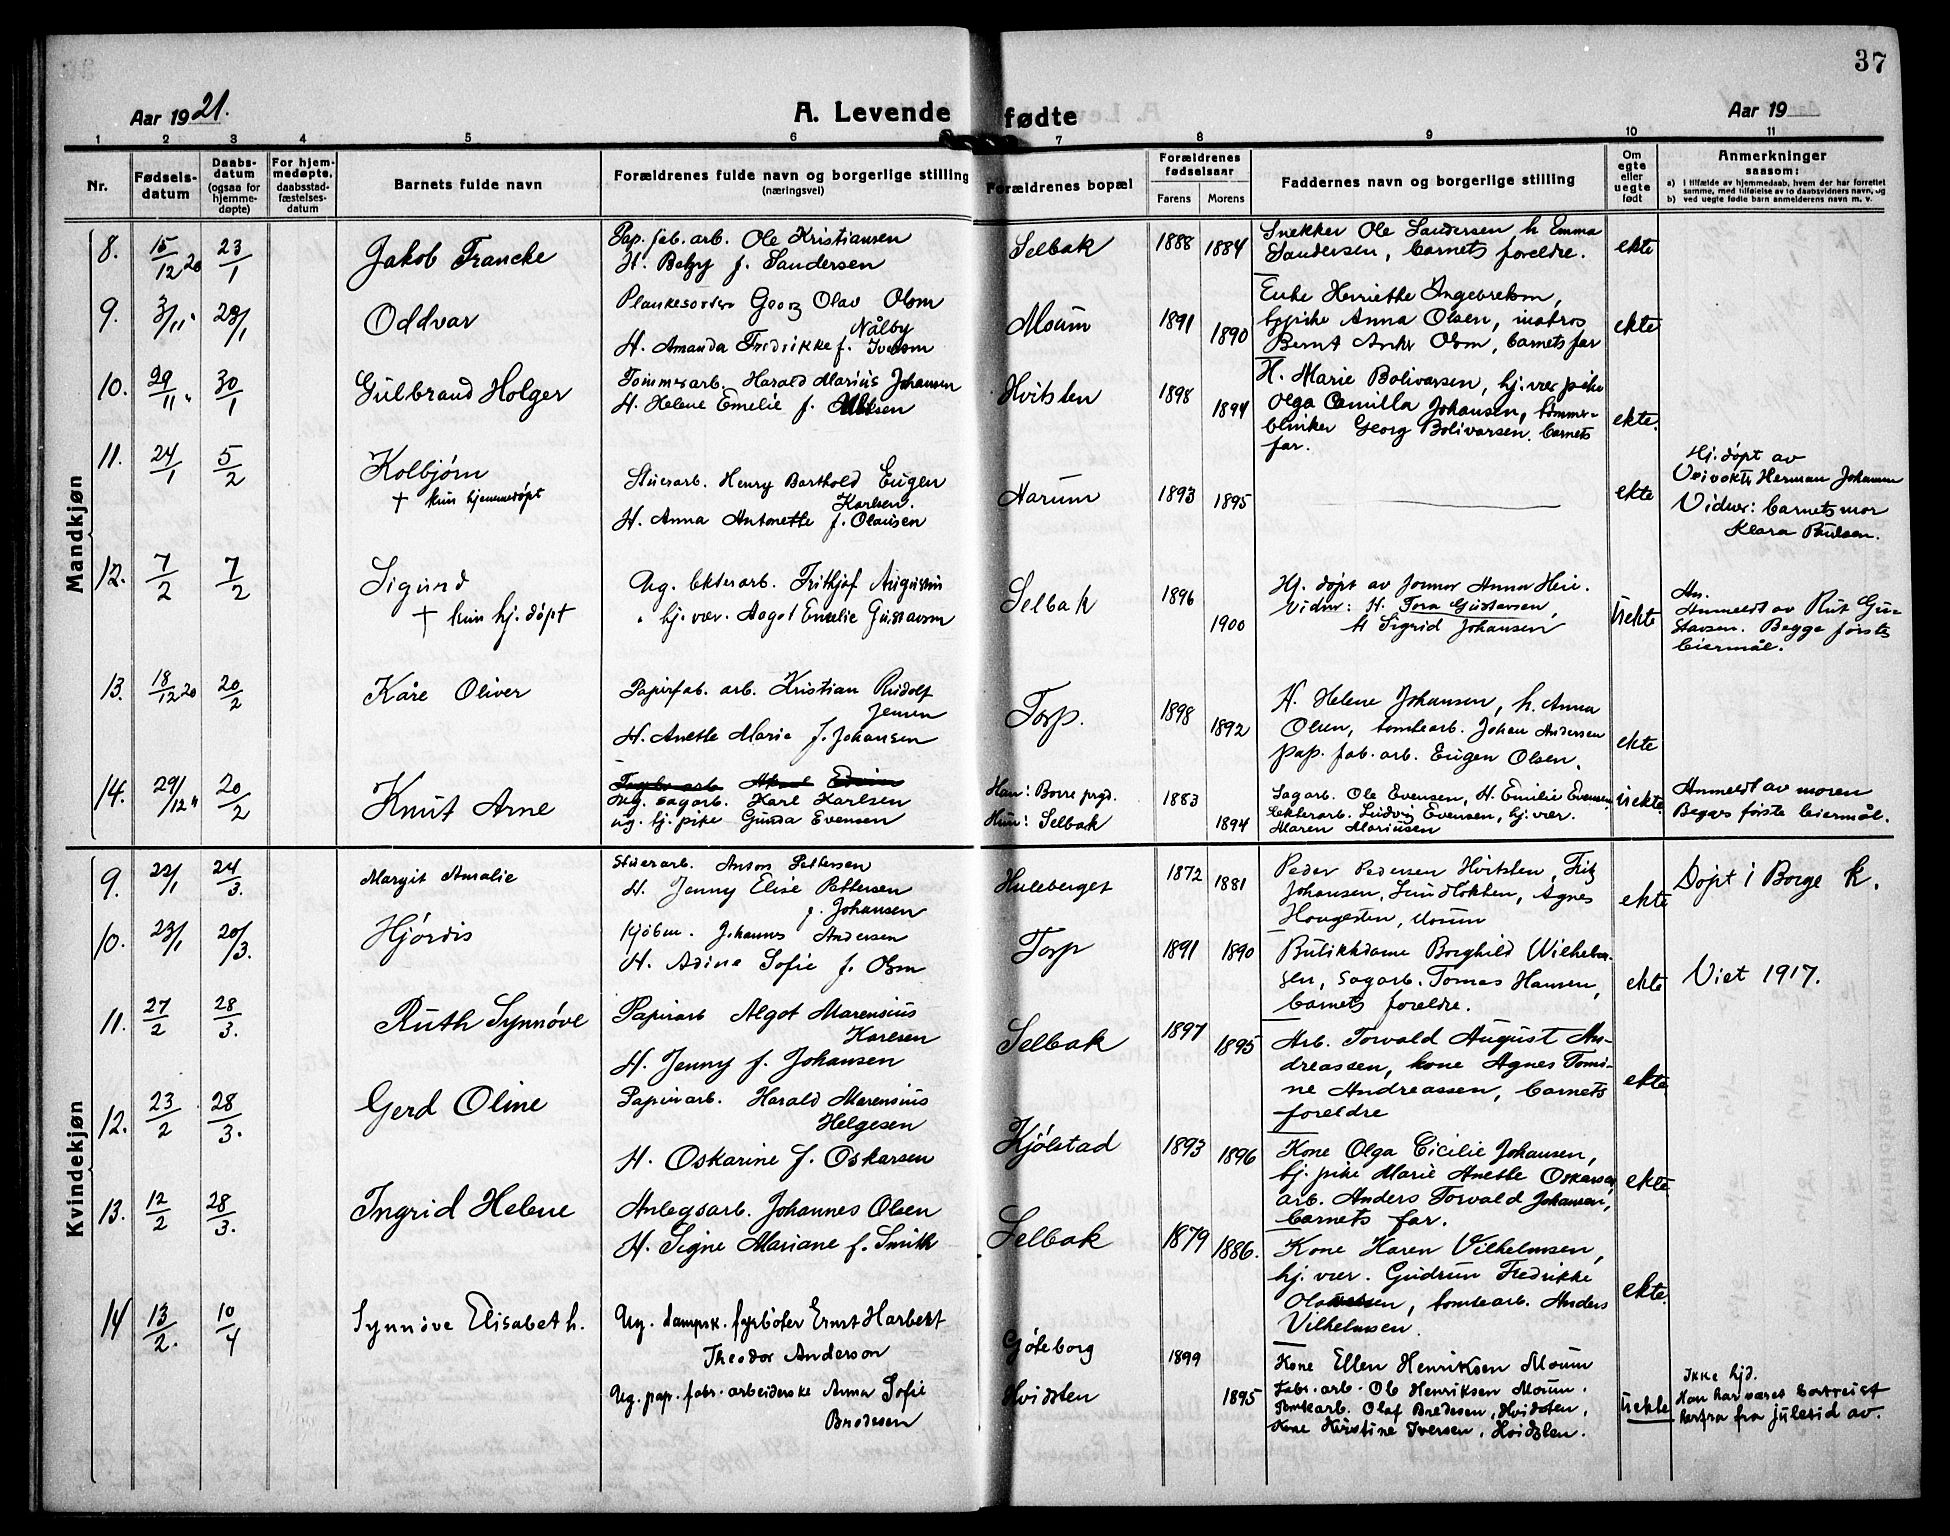 37
Aar 1921.
A. Levende fødte
Aar 19
1 2 3 4 5 6 7 8 9 10 11
Nr.
Fødselsdatum
Daabsdatum (ogsaa for hjemmedøpte)
For hjemmedøpte, daabsstadfæstelsesdatum
Barnets fulde navn
Forældrenes fulde navn og borgerlige stilling (næringsvei)
Forældrenes bopæl
Forældrenes fødselsaar
Farens Morens
Faddernes navn og borgerlige stilling
Om egte eller uegte født
Anmerkninger saasom:
a) i tilfælde av hjemmedaab, hvem der har forrettet samme, med tilføielse av to daabsvidners navn, og
b) ved uegte fødte barn anmelderens navn m. v.
Mandkjøn
8. 15/12 20 23/1 Jakob Francke
Pap. fab. arb. Ole Kristiansen
H. Betzy f. Sandersen
Selbak 1888 1884
Snekker Ole Sandersen h Emma
Sandersen, barnets foreldre.
ekte
9. 3/11 " 23/1 Oddvar
Plankesorter Georg Olav Olsen
Nålby
H. Amanda Fredrikke f. Iversen
Moum 1891 1890
Enke Henriette Ingebretsen,
Anna Olsen, matros
Bernt Anker Olsen, barnets far
ekte
10. 29/11 " 30/1 Gulbrand Holger
Tømmerarb. Harald Marius Johansen
H. Helene Emelie f. Nilsen
Hvitsten 1898 1894
H. Marie Bolivarsen, hj. vær pike
Olga Camilla Johansen, tømmer-
blinker Georg Bolivarsen. barnets
far.
ekte.
11. 24/1 5/2 Kolbjørn
† kun hjemmedøpt
Stuerarb. Henry Barthold Eugen
Karlsen.
H. Anna Antonette f. Olausen
Narum 1893 1895
ekte
Hj. døpt av
Veivokter Herman Johansen
Vidner: barnets mor
Klara Paulsen.
12. 7/2 7/2 Sigurd
† kun hj. døpt
Ug. Ekterarb. Frithjof Augustin
" hj. vær. Aagot Emelie Gustavsen
Selbak 1896 1900
Hj. døpt av jormor Anna Heie.
Vidner: H. Tora Gustavsen,
H Sigrid Johansen
uekte
An.
Anmeldt av Rut Gu-
stavsen. Begge første
leiermål.
13. 18/12 20 20/2 Kåre Oliver
Papirfab. arb. Kristian Rudolf
Jensen
H. Anette Marie f. Johansen
Torp. 1898 1892
H. Helene Johansen, h. Anna
Olsen, tomtearb. Johan Andersen
pap. fab. arb. Eugen Olsen.
ekte
14. 29/12 " 20/2 Knut Arne
Ug. sagarb. Karl Karlsen
ug. hj. pike Gunda Evensen
Han: Borre prgd.
Hun: Selbak
1883 1894
Sagarb. Ole Evensen, H. Emilie Evensen
Ekterarb. Ludvig Evensen, hj. vær.
Maren Mariusen
uekte
Anmeldt av moren
Begges første leiermål.
Kvindekjøn
9. 22/1 24/3. Margit Amalie
Stuerarb. Anton Pettersen
H. Jenny Elise Pettersen
f. Johansen
Huleberget 1872 1881
Peder Pedersen Hvitsten, Fritz
Johansen, Agnes
Haugesten, Moum
ekte
Døpt i Borge k.
10. 23/1 20/3. Hjørdis
Kjøbm. Johannes Andersen
H. Adine Sofie f. Olsen
Torp 1891 1890
Butikkdame Borghild Wilhelm-
sen, sagarb. Tomas Hansen,
barnets foreldre.
ekte
Viet 1917.
11. 27/2 28/3. Ruth Synnøve
Papirarb Algot Marensius
Karlsen
H. Jenny f. Johansen
Selbak 1897 1895
Arb. Torvald August An-
dreassen, kone Agnes Tomi-
ne Andreassen, barnets
foreldre
ekte
12. 23/2 28/3. Gerd Oline
Papirarb. Harald Marensius
Helgesen
H. Oskarine f. Oskarsen
Kjølstad 1893 1896
Kone Olga Cicilie Johansen,
hj. pike Marie Anette Oskarsen,
arb. Anders Torvald Johansen,
barnets far.
ekte
13. 12/2 28/3. Ingrid Helene
Anlegsarb. Johannes Olsen
H. Signe Mariane f. Smith
Selbak 1879 1886.
Kone Karen Vilhelmsen,
hj. vær. Gudrun Fredrikke
Olavesen, tomtearb. Anders
Vilhelmsen.
ekte.
14 13/2. 10/4 Synnøve Elisabeth.
Ug. dampsk. fyrbøter Ernst Harbert
Theodor Anderson
Ug. pap. fabr. arbeiderske Anna Sofie
Bredesen
Göteborg
Hvidsten
1899 1895
Kone Ellen Henriksen Moum
Fabr. arb. Ole Henriksen Moum.
Tomtearb. Olaf Bredesen, Hvidsten,
Kone Kirstine Iversen, Hvidsten.
uekte
Ikke hjd.
Han har været bortreist
herfra fra juletid av.